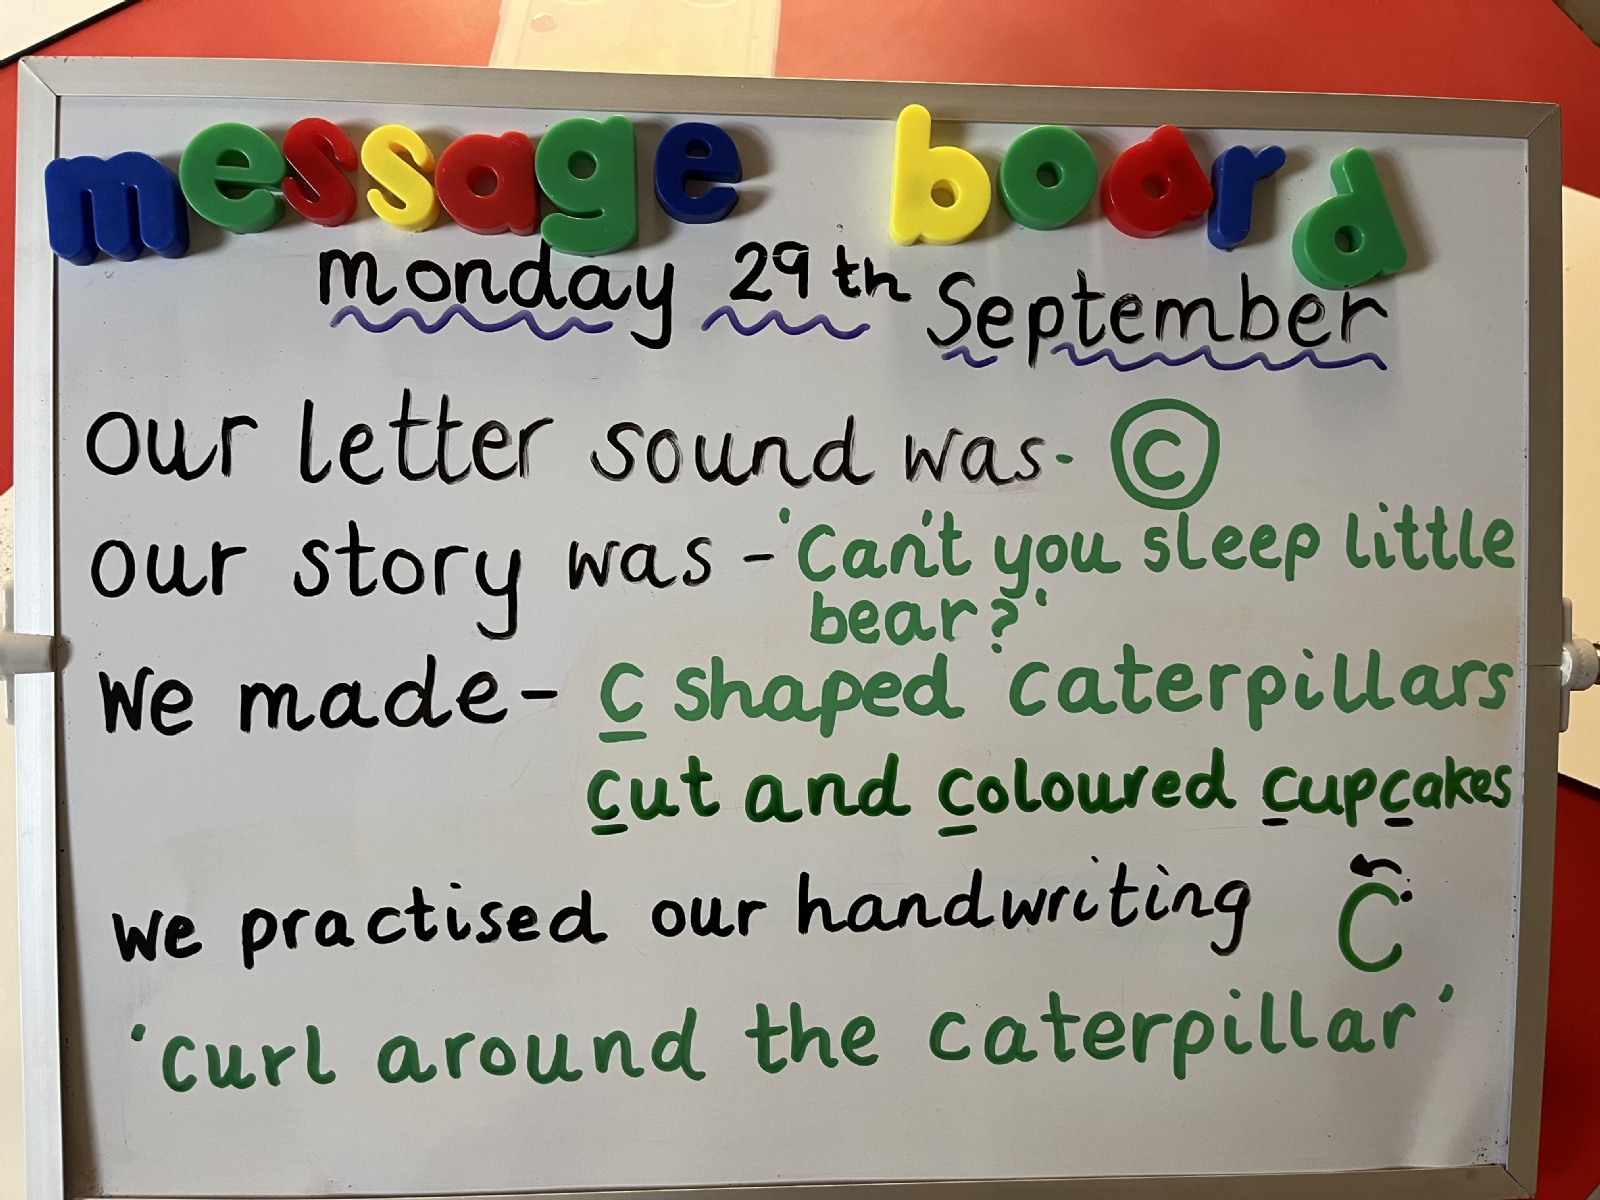 message board
monday 29th September
our letter sound was- c
our story was - 'Can't you sleep little
bear?'
We made - c shaped caterpillars
cut and coloured cupcakes
we practised our handwriting C
'curl around the caterpillar'